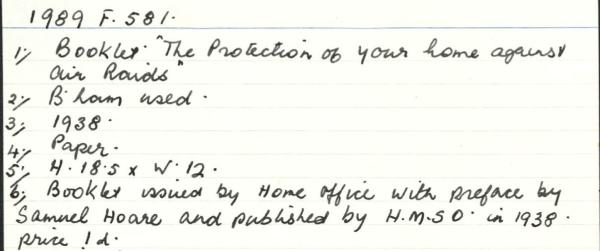 1989 F. 581.
1; Booklet. "The Protection of your home against
Air Raids"
2; B'ham used.
3; 1938.
4; Paper.
5; H. 18.5 x W. 12.
6; Booklet issued by Home Office with preface by
Samuel Hoare and published by H.M.S.O. in 1938.
price 1d.